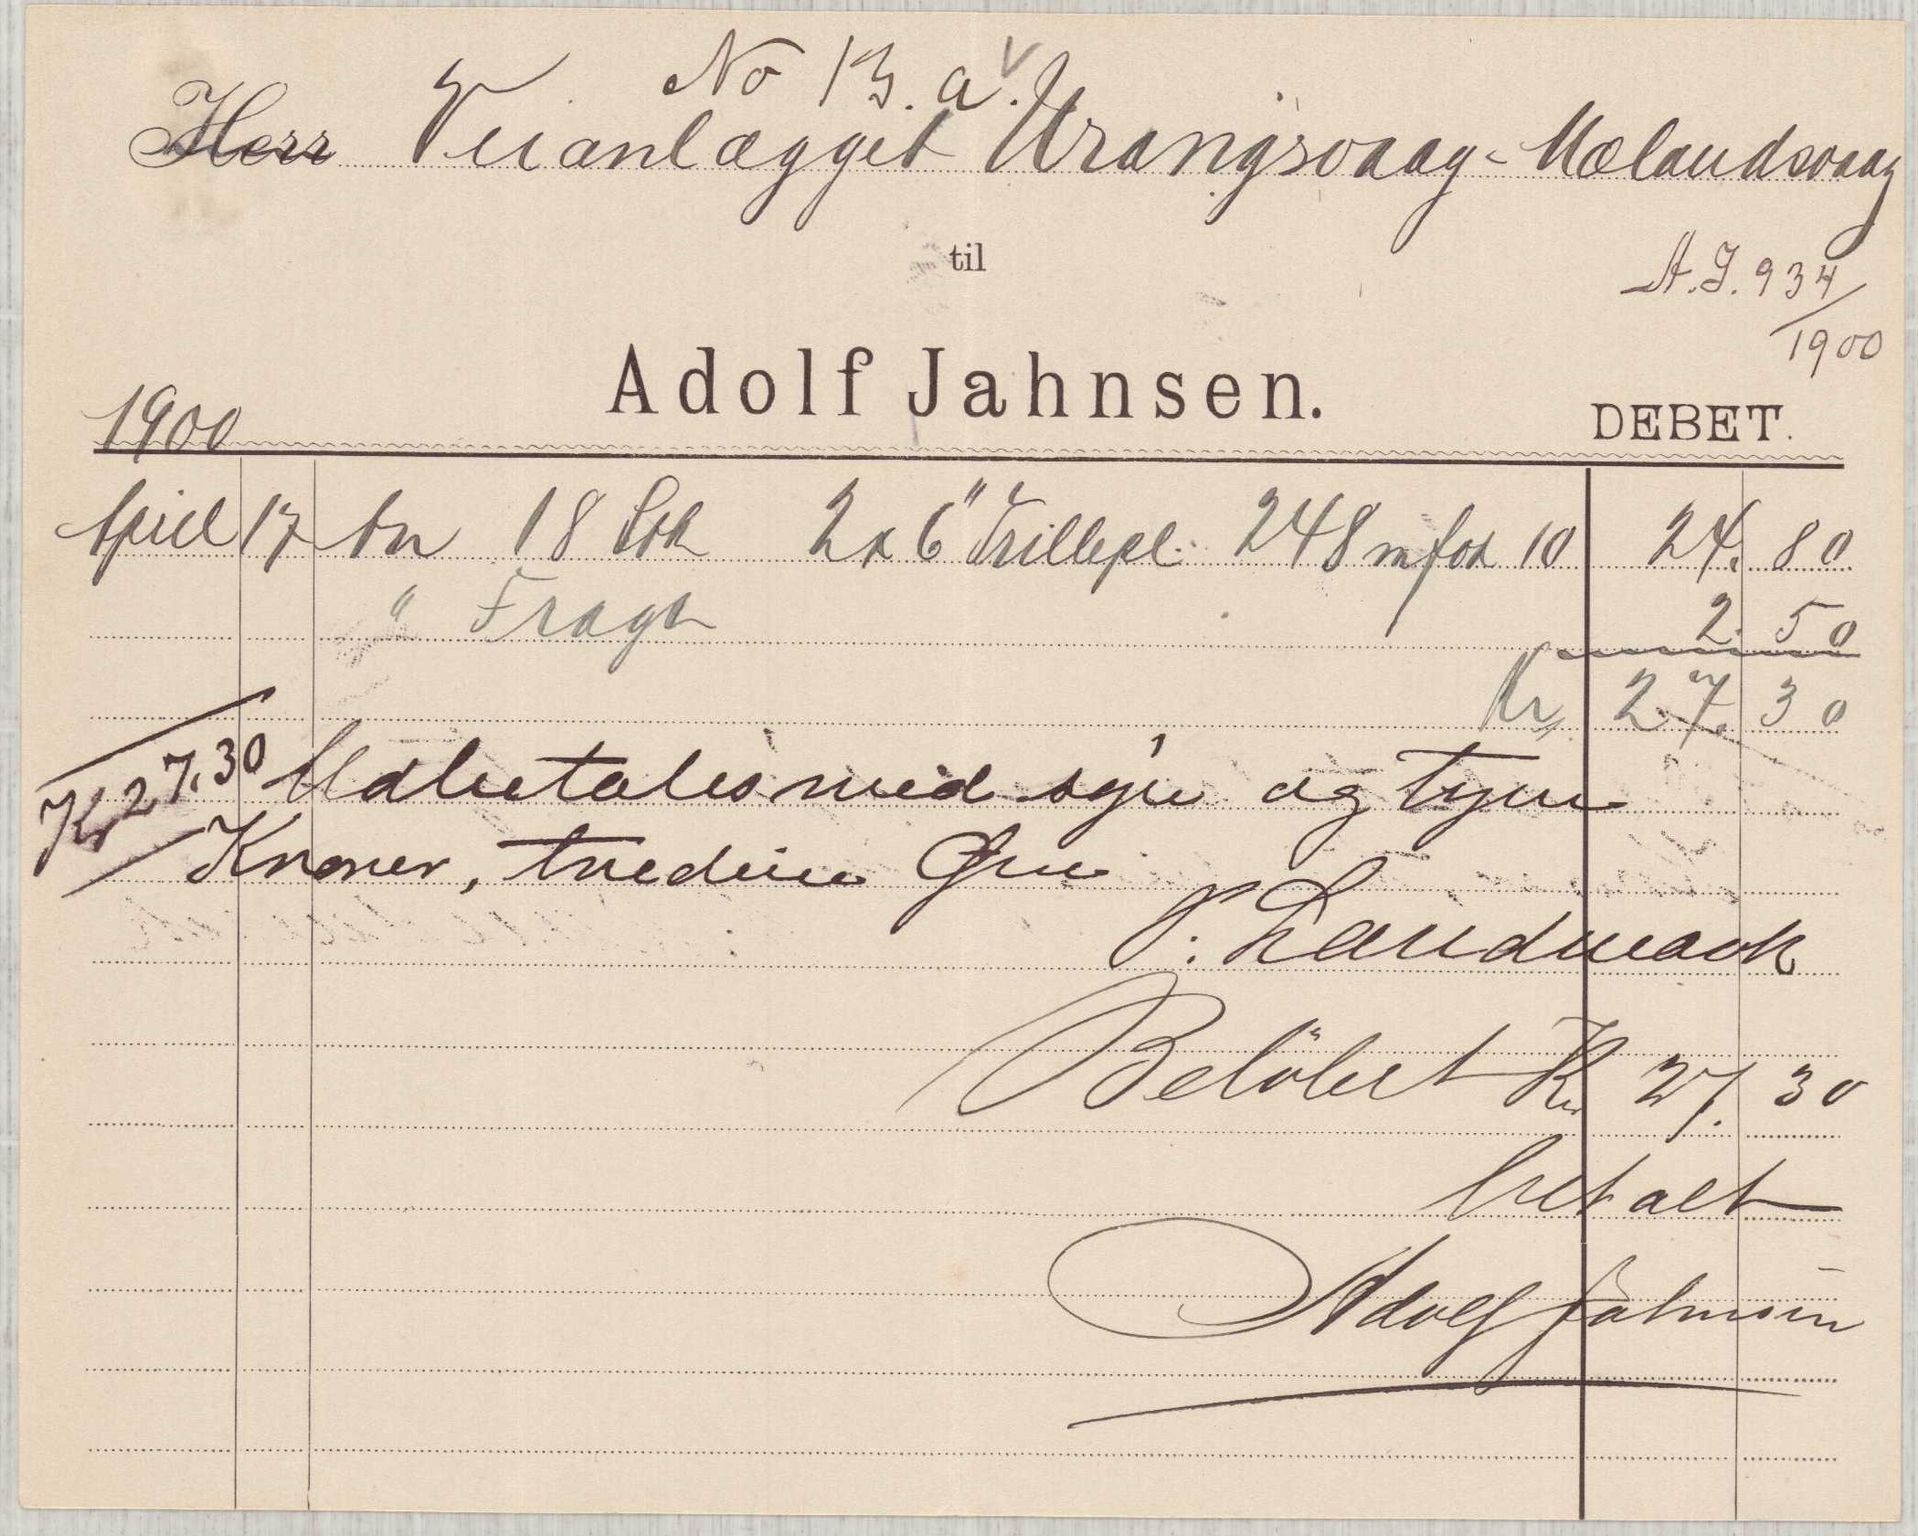 No 13. a.
Herr Veianlægget Urangsvaag-Mælandsvaag
til
A.J. 934/1900
Adolf Jahnsen.
1900 DEBET.
April 17 An 18 Stk 2x6" Trillepl. 248 m fod 10 24. 80
" Fragt 2. 50
Kr 27. 30
Kr 27.30 Udbetales med syv og tyve
Kroner, tredive Øre
P. Landmark
Beløbet Kr 27. 30
betalt
Adolf Jahnsen